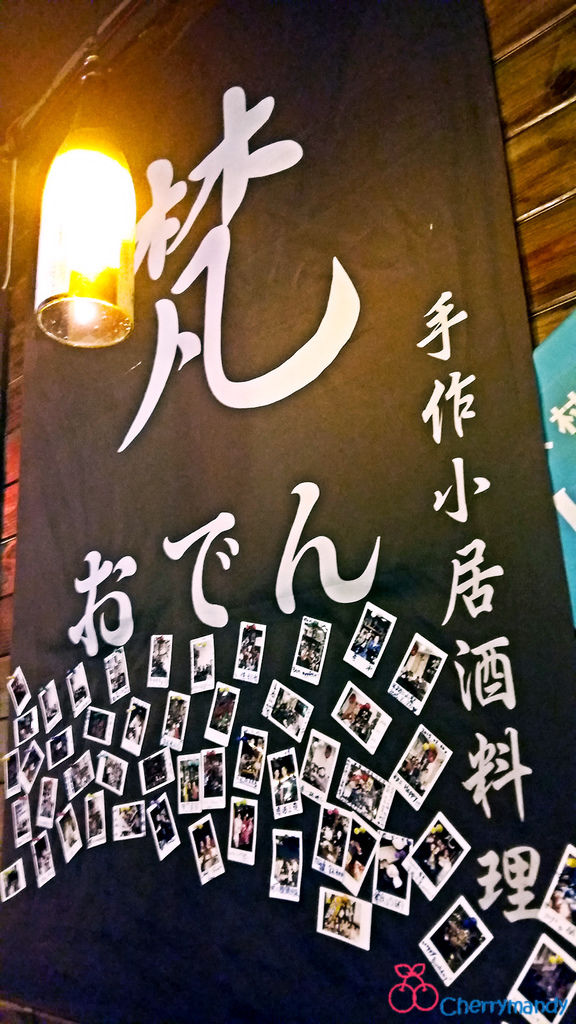 梵
おでん
手作小居酒料理
村
Cherrymandy